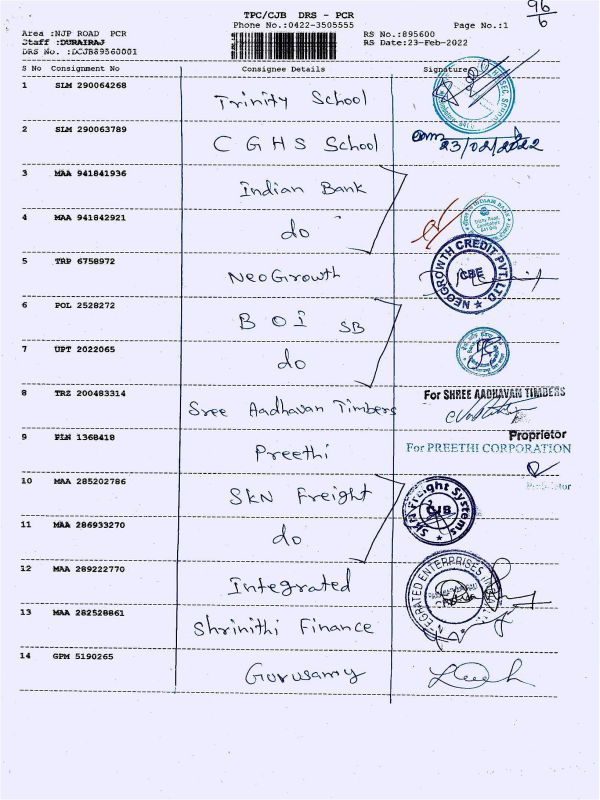 96
6
TPC/CJB DRS - PCR
Area :NJP ROAD PCR Phone No.:0422-3505555 Page No.:1
Staff :DURAIRAJ RS No.:895600
DRS No. :DCJB89560001 RS Date:23-Feb-2022
S No Consignment No Consignee Details Signature
1 SLM 290064268 Trinity School
2 SLM 290063789 C G H S School 23/02/2022
3 MAA 941841936 Indian Bank
4 MAA 941842921 do INDIAN BANK
5 TRP 6758972 NeoGrowth NEOGROWTH CREDIT PVT. LTD. CBE
6 POL 2528272 B O I SB
7 UPT 2022065 do
8 TRZ 200483314 Sree Aadhavan Timbers For SHREE AADHAVAN TIMBERS
Proprietor
9 PLN 1368418 Preethi For PREETHI CORPORATION
Proprietor
10 MAA 285202786 SKN Freight SKN Freight Systems CJB
11 MAA 286933270 do
12 MAA 289222770 Integrated INTEGRATED ENTERPRISES
13 MAA 282528861 Shrinithi Finance
14 GPM 5190265 Gurusamy